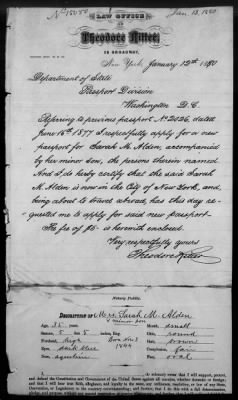 No 15050
Jan 13, 1880
LAW OFFICE
OF
Theodore Ritter,
BROADWAY,
New York, January 12th 1880
Department of State
Passport Division
Washington D.C.
Refering to previous passport No 2026, dated
June 16th 1877 I respectfully apply for a new
passport for Sarah M. Alden, accompanied
by her minor son, the persons therein named
And I do hereby certify that the said Sarah
M. Alden is now in the City of New York, and,
being about to travel abroad, has this day re-
quested me to apply for said new passport-
The fee of $5- is herewith enclosed.
Very respectfully yours
Theodore Ritter
Notary Public.
DESCRIPTION OF Mrs. Sarah M. Alden
& minor son
Age, 35 years.
Mouth, small
Stature, 5 feet, 5 inches, Eng.
Chin, round
Forehead, high
Hair, brown
Eyes, dark blue
Complexion, fair
Nose, aquiline
Face, oval
that I will support, protect,
and defend the Constitution and Government of the United States against all enemies, whether domestic or foreign; and
that I will bear true faith, allegiance, and loyalty to the same, any ordinance, resolution, or law of any State,
Convention, or Legislature to the contrary notwithstanding; and further, that I do this with a full determination,
pledge, and purpose, without any mental reservation or evasion